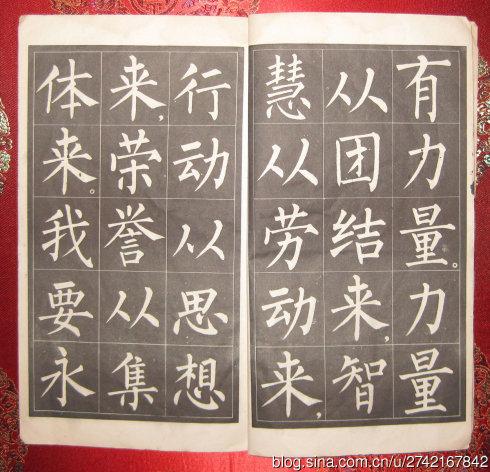 有力量。力量
从团结来，智
慧从劳动来，
行动从思想
来，荣誉从集
体来。我要永
blog.sina.com.cn/u/2742167842